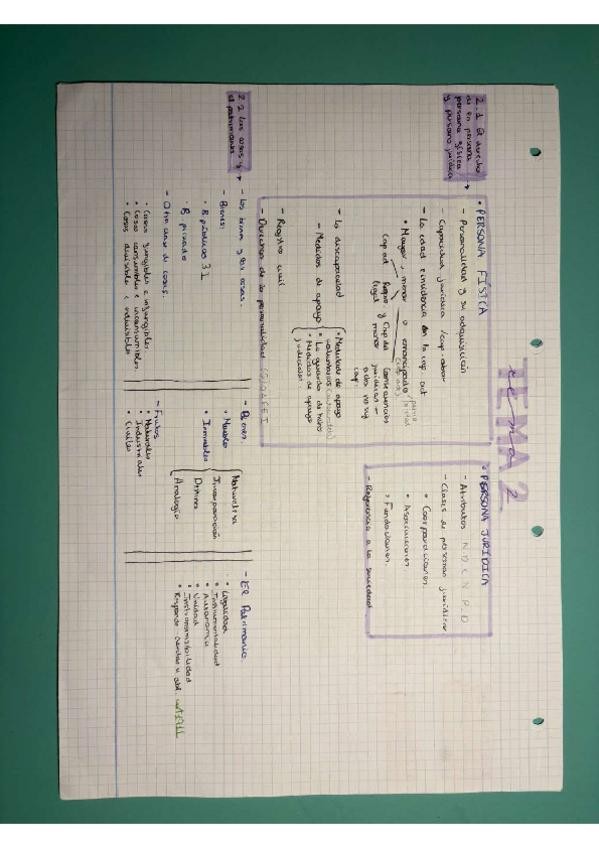 TEMA 2
tema
2.1 El derecho
de en persona
persona física
y persona jurídica
• PERSONA FÍSICA
- Personalidad y su adquisición
- Capacidad jurídica / cap. obrar
- La edad e incidencia en la cap. act
• Mayor, menor o emancipado
- La discapacidad
- Medidas de apoyo
• Medidas de apoyo
voluntarias
• La guarda de hecho
• Medidas de apoyo
judiciales.
- Registro civil
- Derechos de la personalidad
• PERSONA JURÍDICA
- Atributos N.D.C.N.P.D
- Clases de personas jurídicas
• Corporaciones.
• Asociaciones.
• Fundaciones.
- Referencia a la sociedad
2.2 Las cosas y
el patrimonio
- Los bienes y las cosas.
- Bienes:
• B. públicos 3 I
• B. privado
- Otra clase de cosas.
• Cosas fungibles e infungibles
• Cosas consumibles e inconsumibles
• Cosas divisibles e indivisibles
- Bienes.
• Mueble
• Inmuebles
Naturaleza
Incorporación
Destino
Analogía
- Frutos
• Naturales
• Industriales
• Civiles
- El Patrimonio
• Legalidad
• Instrumentalidad
• Autonomía
• Unidad
• Intransmisibilidad